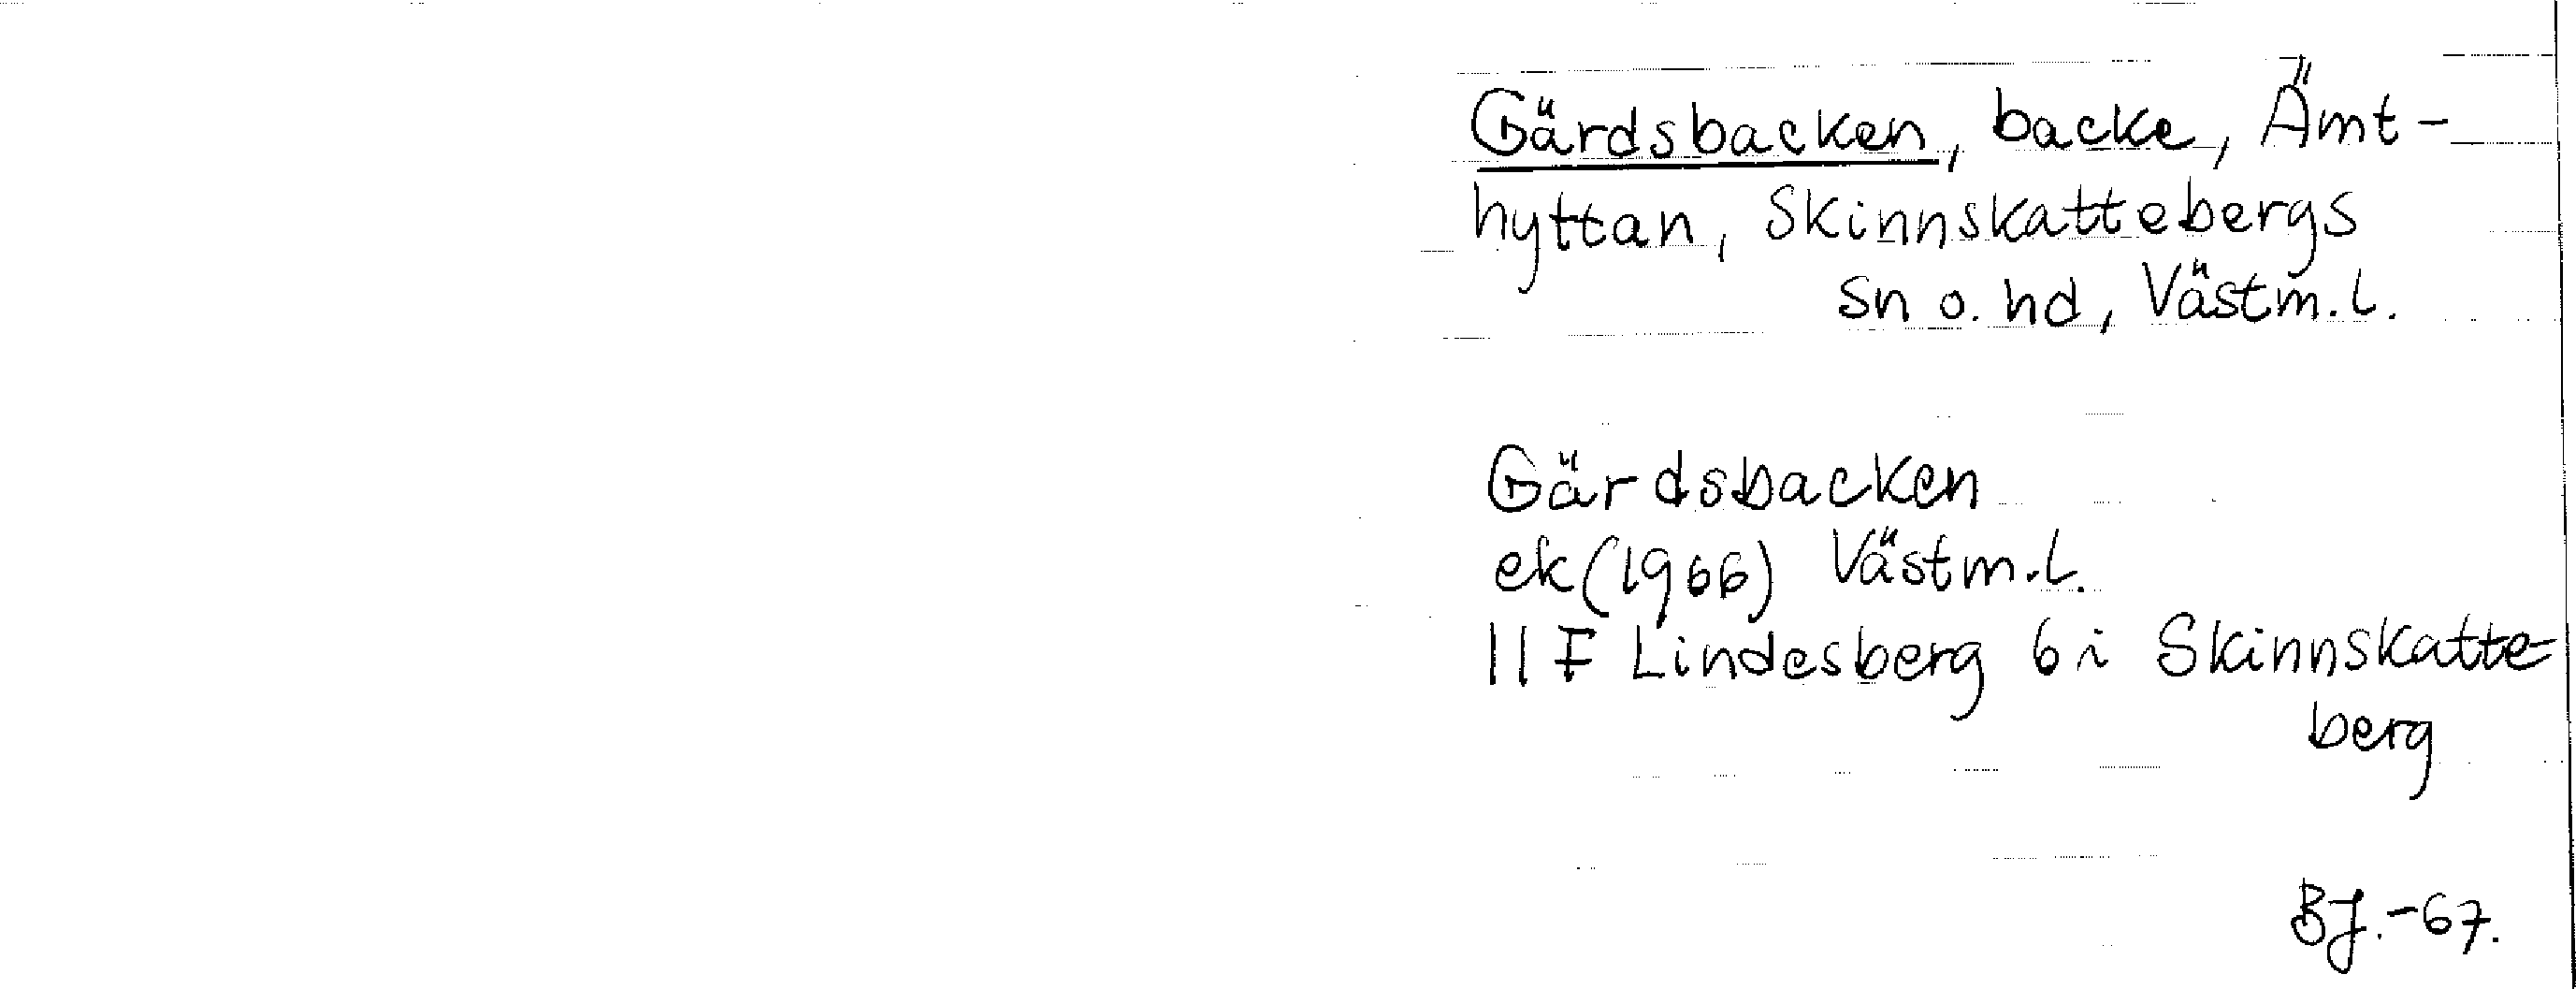 Gärdsbacken, backe, Ämt-
hyttan, Skinnskattebergs
sn o. hd, Västm.l.
Gärdsbacken
ek (1966) Västm.l.
11 F Lindesberg 6 i Skinnskatte-
berg
BJ.-67.